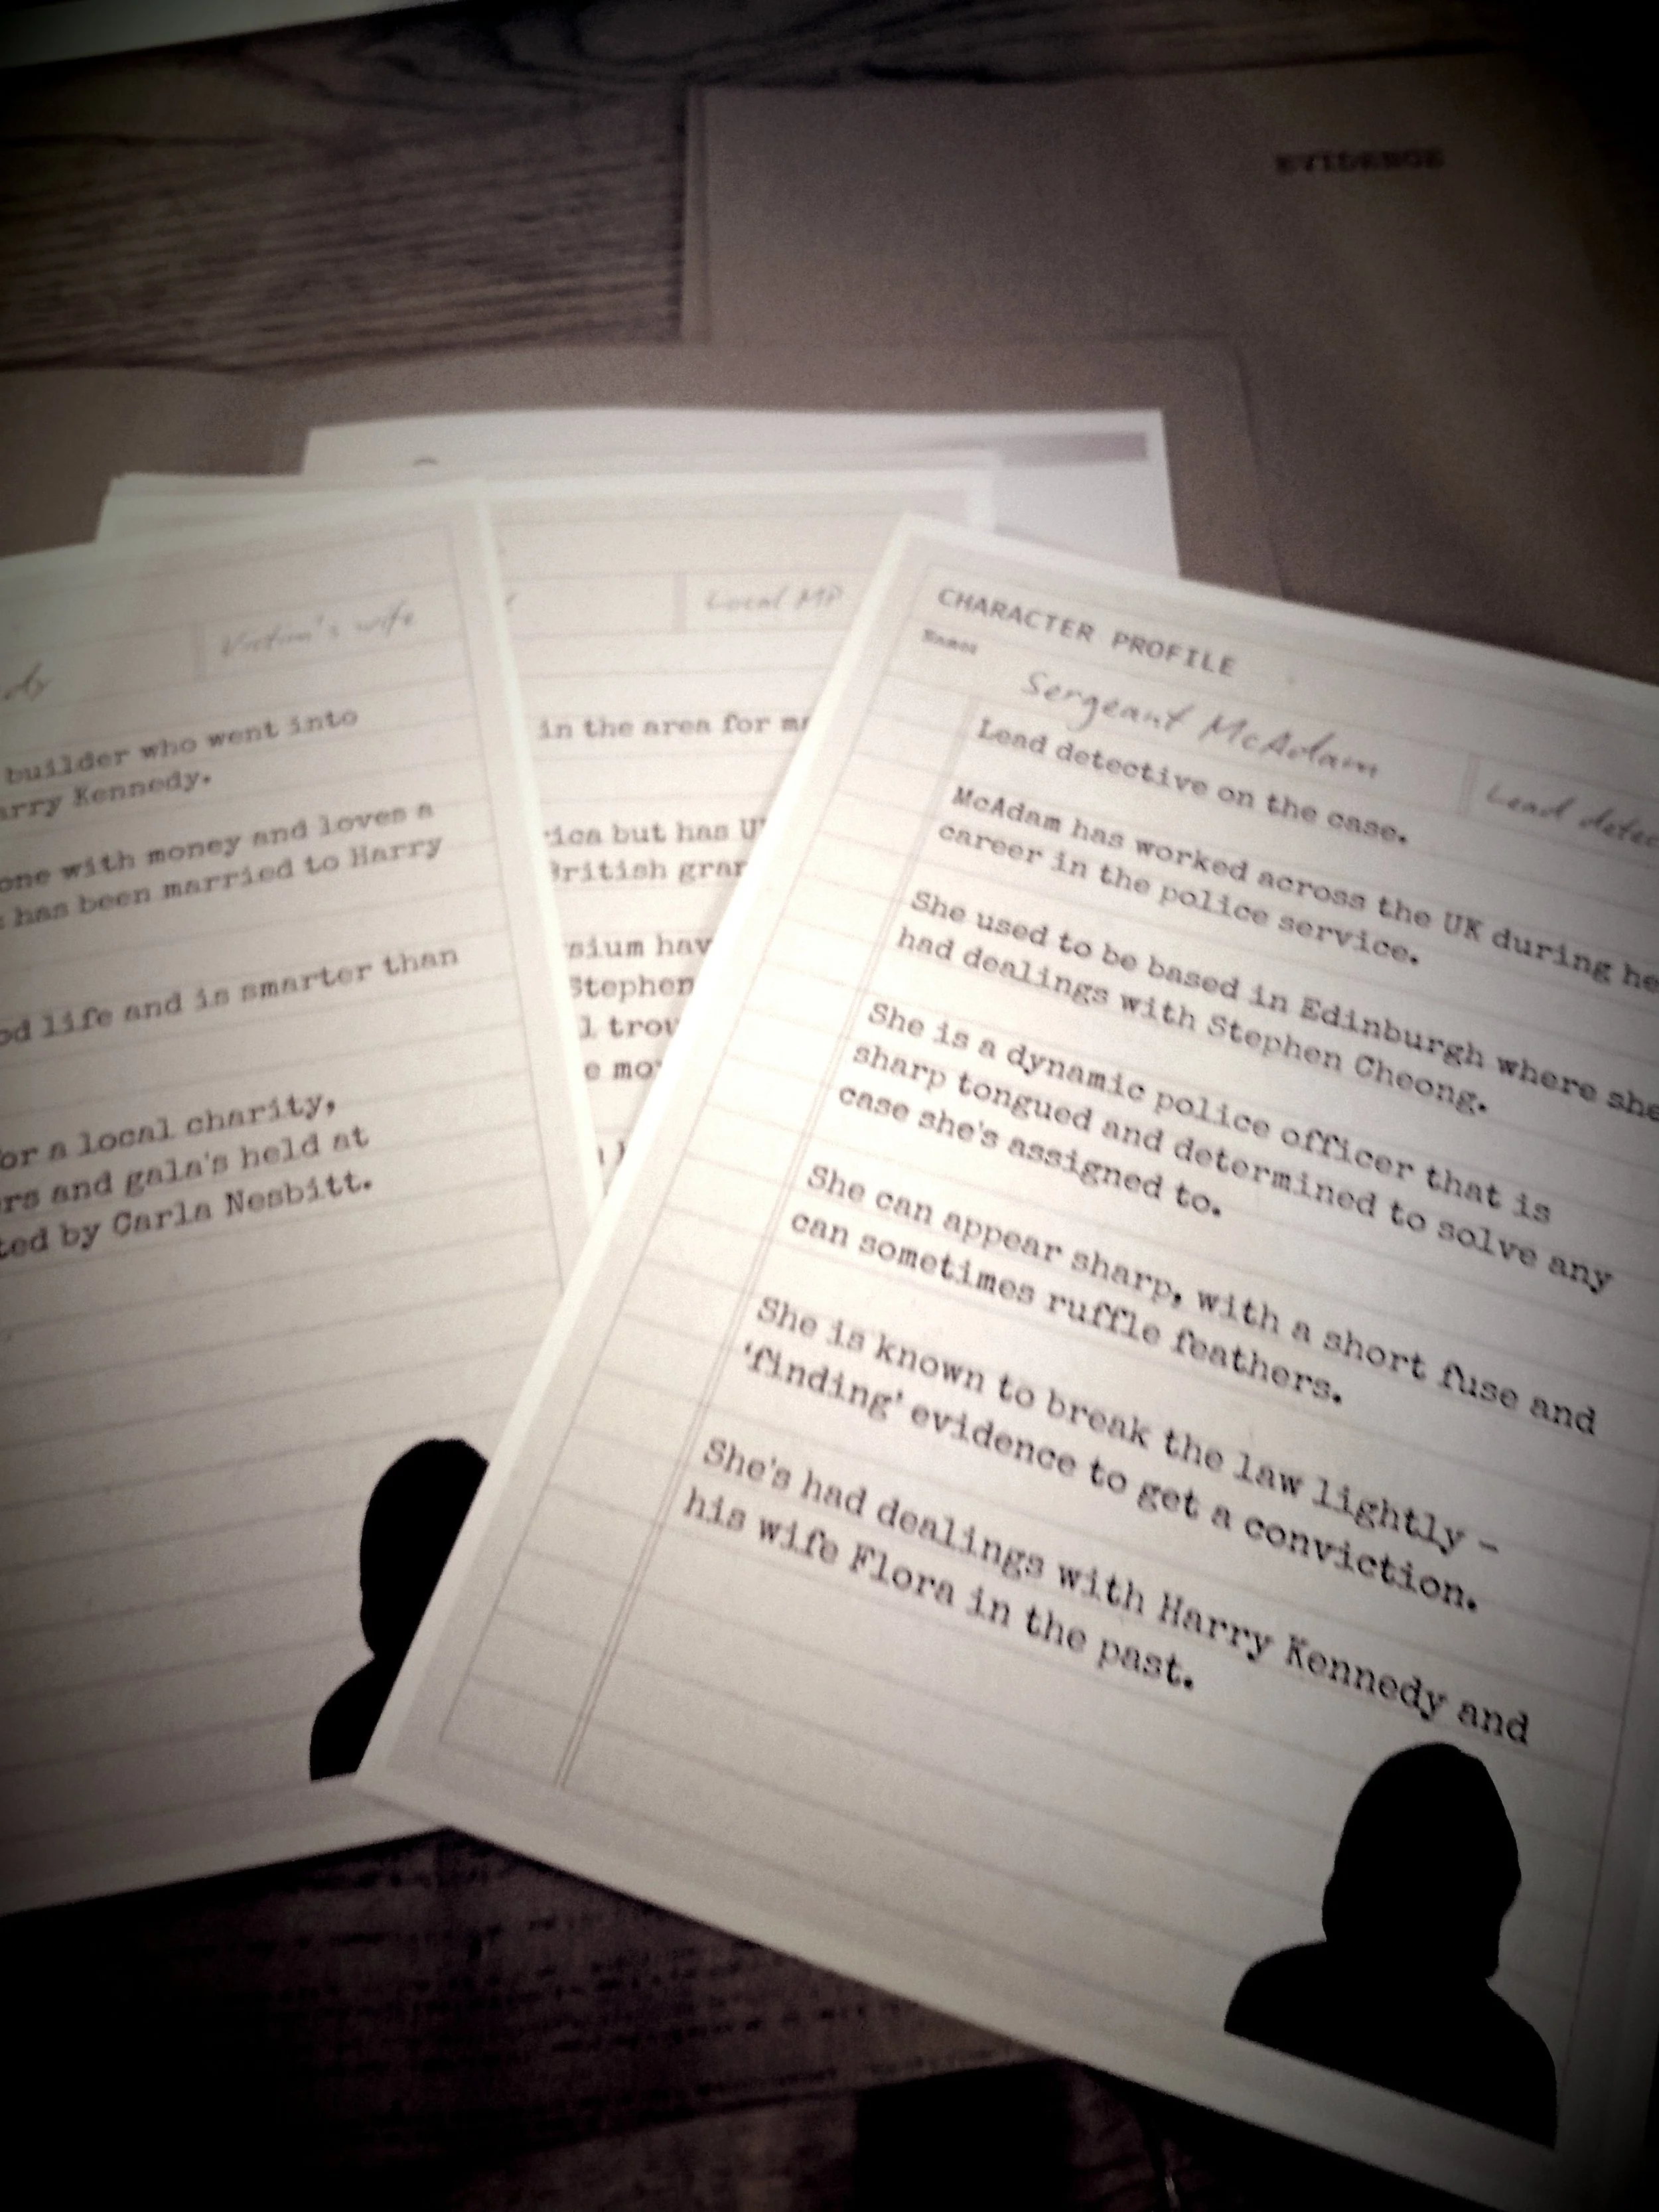 EVIDENCE
Victim's wife
builder who went into
arry Kennedy.
one with money and loves a
has been married to Harry
od life and is smarter than
or a local charity,
rs and gala's held at
ted by Carla Nesbitt.
Local MP
in the area for
ica but has
British gran
sium hav
Stephen
l trou
e mo
CHARACTER PROFILE
Name:
Sergeant McAdam
Lead detec
Lead detective on the case.
McAdam has worked across the UK during he
career in the police service.
She used to be based in Edinburgh where she
had dealings with Stephen Cheong.
She is a dynamic police officer that is
sharp tongued and determined to solve any
case she's assigned to.
She can appear sharp, with a short fuse and
can sometimes ruffle feathers.
She is known to break the law lightly -
'finding' evidence to get a conviction.
She's had dealings with Harry Kennedy and
his wife Flora in the past.